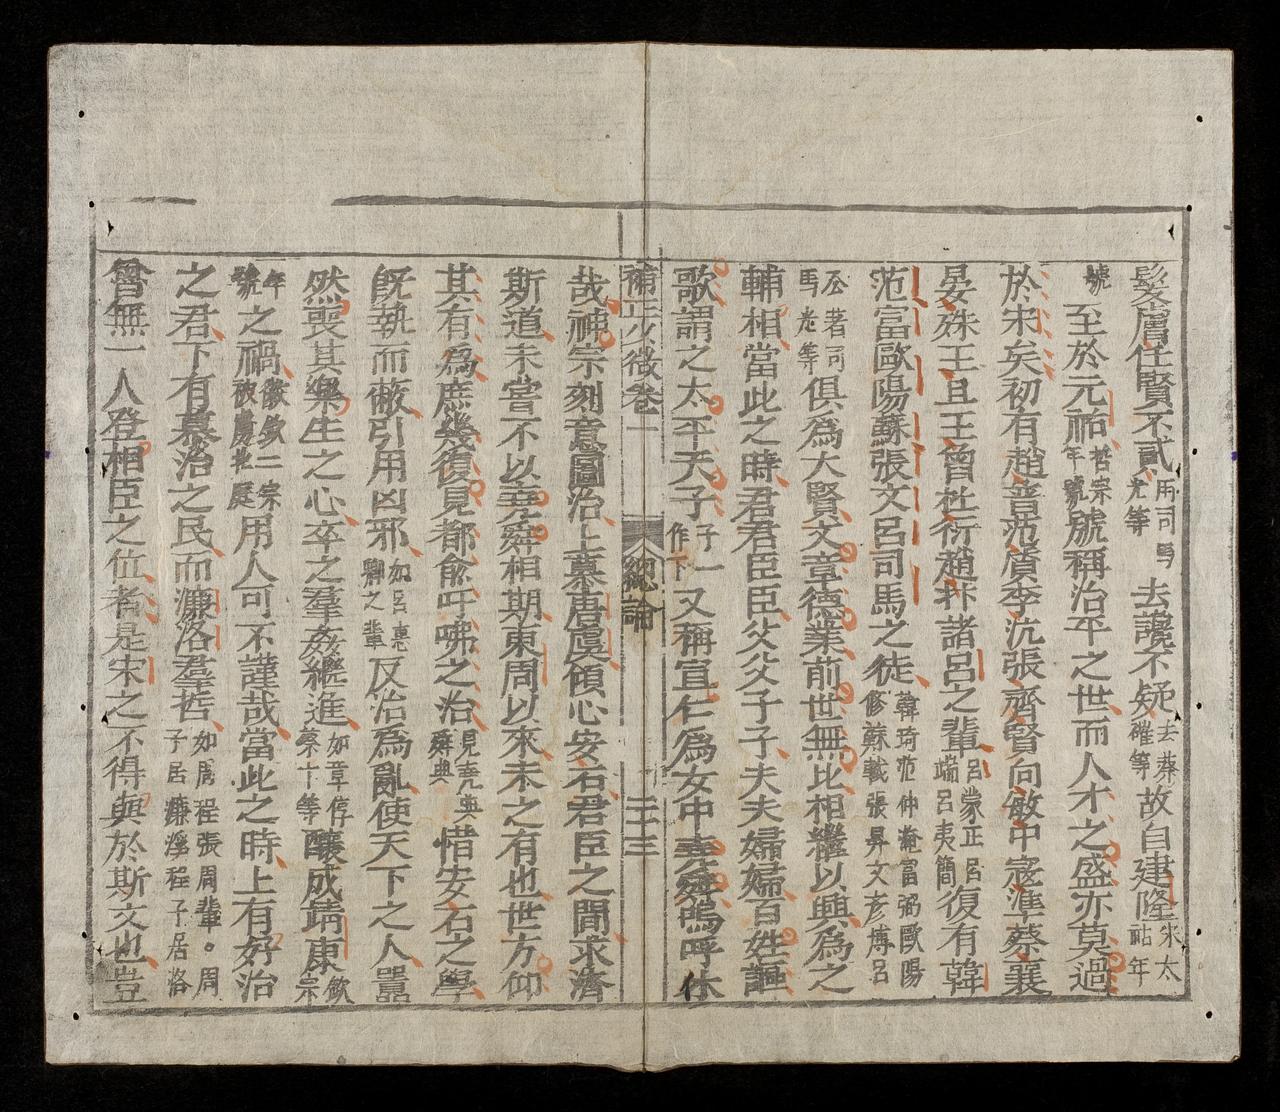 髮膚任賢不貳用司馬光等去讒不疑去蔡確等故自建隆宋太祖年
號至於元祐哲宗年號號稱治平之世而人才之盛亦莫過
於宋矣初有趙普范質李沆張齊賢向敏中寇準蔡襄
晏殊王旦王曾杜衍趙抃諸呂之輩呂蒙正呂端呂夷簡復有韓
范富歐陽蘇張文呂司馬之徒韓琦范仲淹富弼歐陽修蘇軾張昇文彦博呂
公著司馬光等俱爲大賢文章德業前世無比相繼以興爲之
輔相當此之時君君臣臣父父子子夫夫婦婦百姓謳
歌謂之太平天子子一作下又稱宣仁爲女中堯舜嗚呼休
補正少微卷一 總論 二十三
哉神宗刻意圖治上慕唐虞傾心安石君臣之間求濟
斯道未嘗不以堯舜相期東周以來未之有也世方仰
其有爲庶幾復見都兪吁咈之治見堯典舜典惜安石之學
旣執而蔽引用凶邪如呂惠卿之輩反治爲亂使天下之人囂
然喪其樂生之心卒之羣姦繼進如章惇蔡卞等釀成靖康欽宗
年號之禍徽欽二宗被虜北庭用人可不謹哉當此之時上有好治
之君下有慕治之民而濂洛羣哲如周程張周輩。周子居濂溪程子居洛
曾無一人登相臣之位者是宋之不得與於斯文也豈